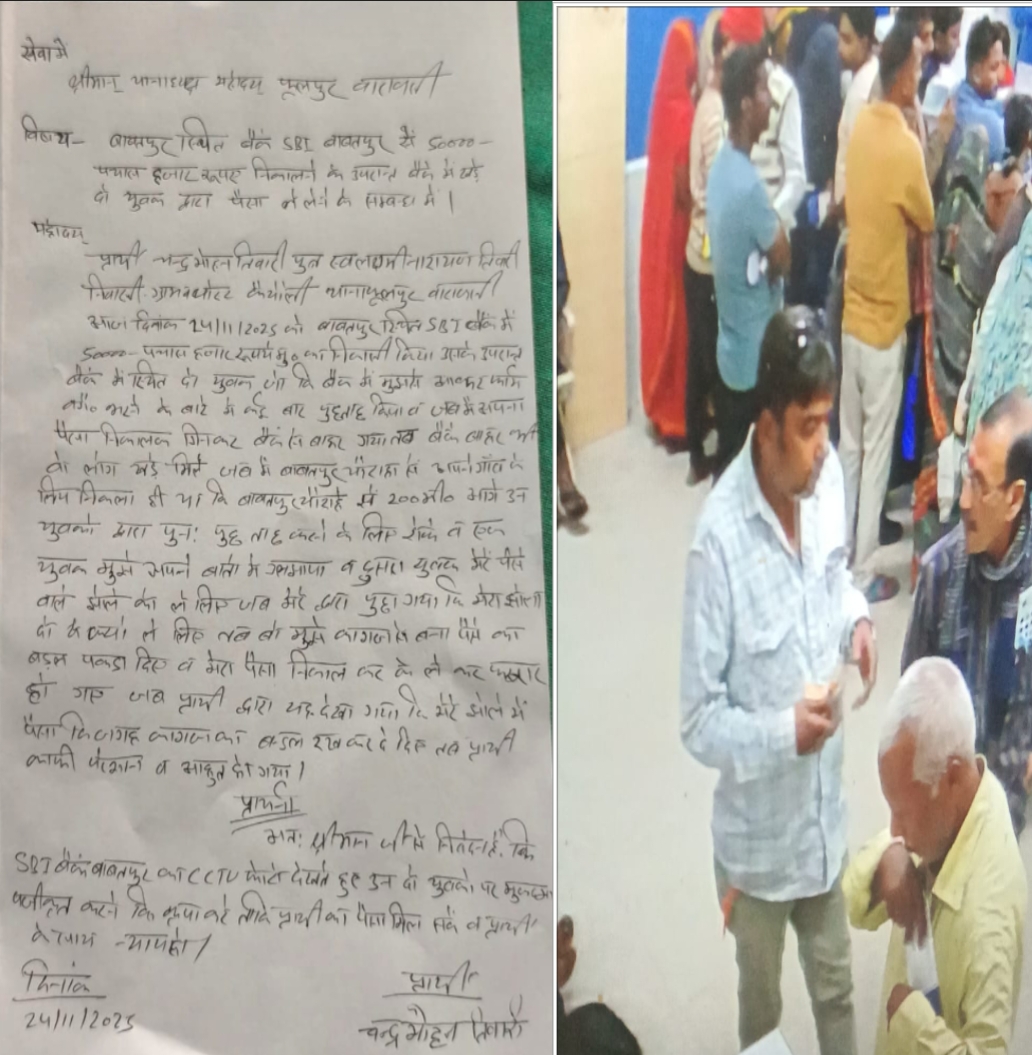 सेवा मे
श्रीमान् थानाध्यक्ष महोदय फूलपुर वाराणसी
विषय- बाबतपुर स्थित बैंक SBI बाबतपुर से 50000-
पचास हजार रूपए निकालने के उपरान्त बैंक में खड़े
दो युवक द्वारा पैसा ले लेने के सम्बन्ध में।
महोदय
प्रार्थी चन्द्र मोहन तिवारी पुत्र स्व लक्ष्मी नारायण तिवारी
निवासी ग्राम व पोस्ट थाना फूलपुर वाराणसी
आज दिनांक 24/11/2025 को बाबतपुर स्थित SBI बैंक में
50000- पचास हजार रूपये मु० का निकासी किया उसके उपरान्त
बैंक में स्थित दो युवक जो कि बैंक में मुझसे आकर फार्म
भरने के बारे में कई बार पुछताछ किया व जब मैं अपना
पैसा निकालकर गिनकर बैंक से बाहर गया तब बैंक बाहर भी
वो लोग खड़े मिले जब मैं बाबतपुर चौराहा से अपने गाँव के
लिए निकला ही था कि बाबतपुर चौराहे से 200 मी० आगे उन
युवको द्वारा पुनः पुछ ताछ करने के लिए रोके व एक
युवक मुझे अपने बातो में उलझाया व दुसरा युवक मेरे पैसे
वाले झोले को ले लिए जब मेरे द्वारा पुछा गया कि मेरा झोला
दो के क्यो ले लिए तब वो मुझे कागज से बना पैसे का
बंडल पकड़ा दिए व मेरा पैसा निकाल कर के ले कर फरार
हो गए जब प्रार्थी द्वारा यह देखा गया कि मेरे झोले में
पैसा कि जगह कागज का बंडल रखकर दे दिए तब प्रार्थी
काफी परेशान व आहत हो गया।
प्रार्थना
अतः श्रीमान जी से निवेदन है, कि
SBI बैंक बाबतपुर का CCTV फोटो देखते हुए उन दो युवको पर मुकदमा
पंजीकृत करने कि कृपा करे ताकि प्रार्थी का पैसा मिल सके व प्रार्थी
के साथ न्याय हो।
दिनांक प्रार्थी
24/11/2025 चन्द्र मोहन तिवारी